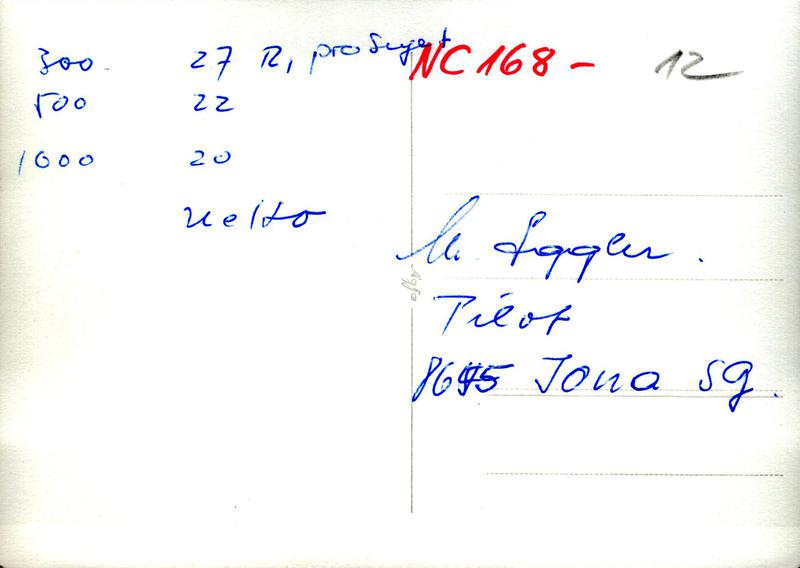 300. 27 R, pro Sujet
500 22
1000 20
netto
NC 168 - 12
Agfa
M. Eggler.
Pilot
8645 Jona SG.